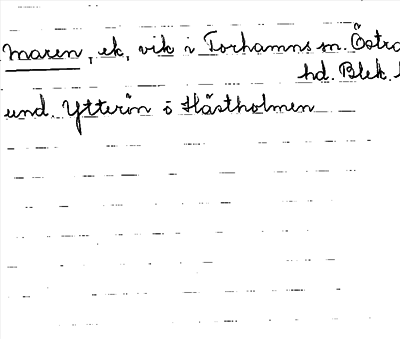 maren, ek, vik i Torhamns sn. Östra
hd. Blek.
und. Ytterön i Hästholmen